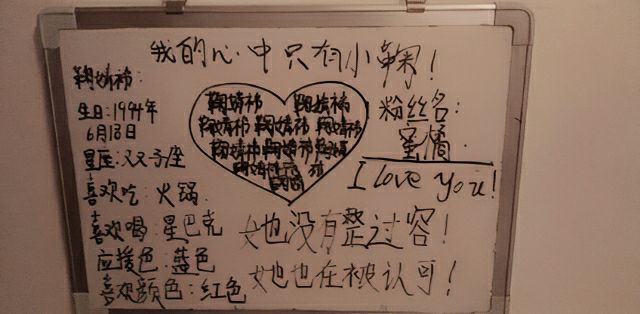 我的心中只有小鞠！
鞠婧祎：
生日：1994年
6月18日
星座：双子座
喜欢吃：火锅
喜欢喝：星巴克
应援色：蓝色
喜欢颜色：红色
鞠婧祎 鞠婧祎
鞠婧祎 鞠婧祎 鞠婧祎
鞠婧祎 鞠婧祎
粉丝名：
蜜橘
I love you!
她也没有整过容！
她也在被认可！